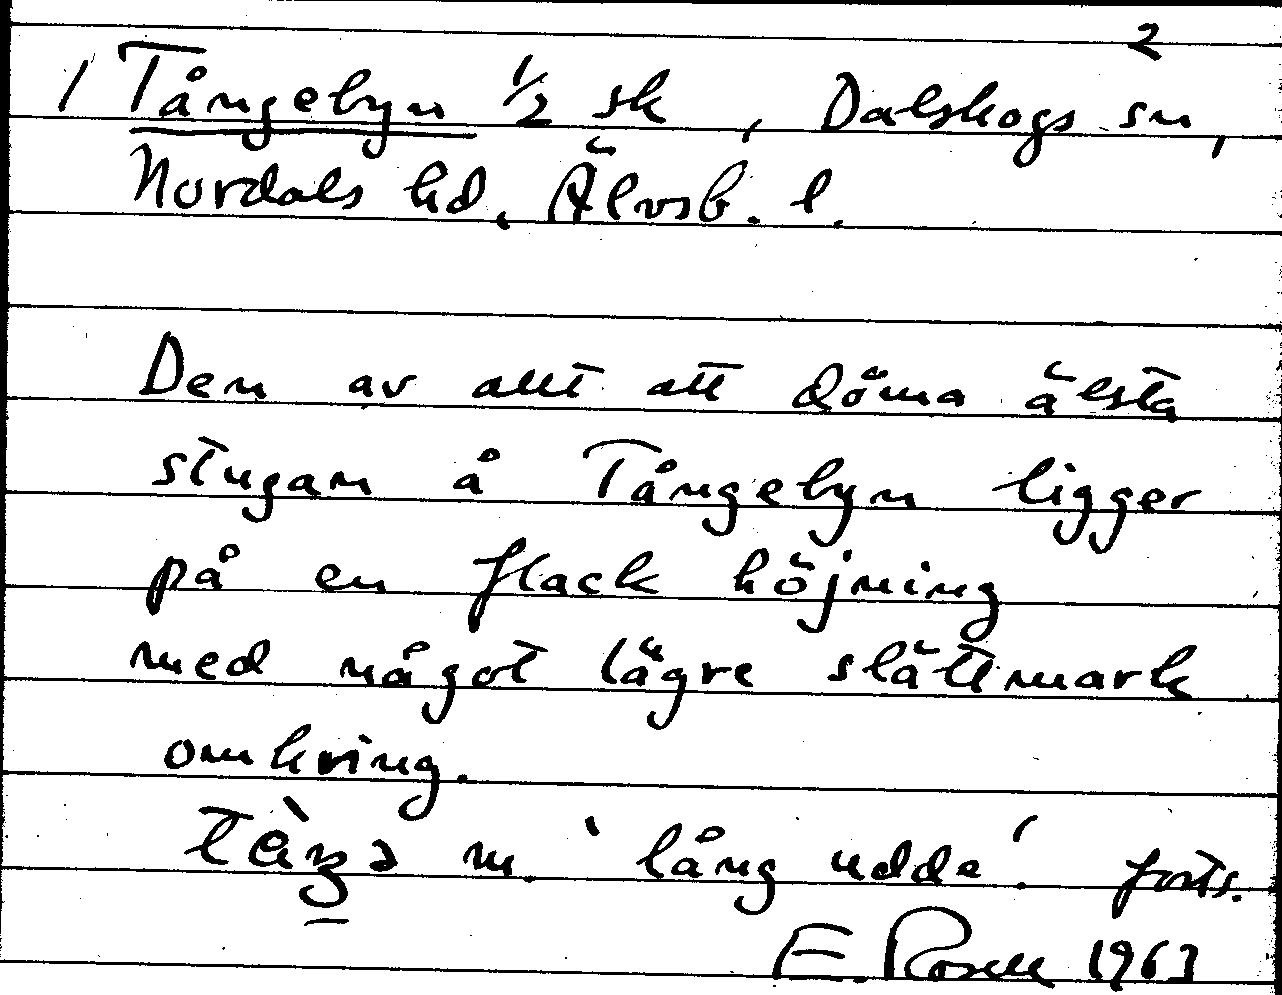 2
1 Tångebyn 1/2 sk, Dalskogs sn,
Nordals hd, Älvsb. l.
Den av allt att döma älsta
stugan å Tångebyn ligger
på en flack höjning
med något lägre slättmark
omkring.
m. 'lång udde'. forts.
E. Rosell 1963